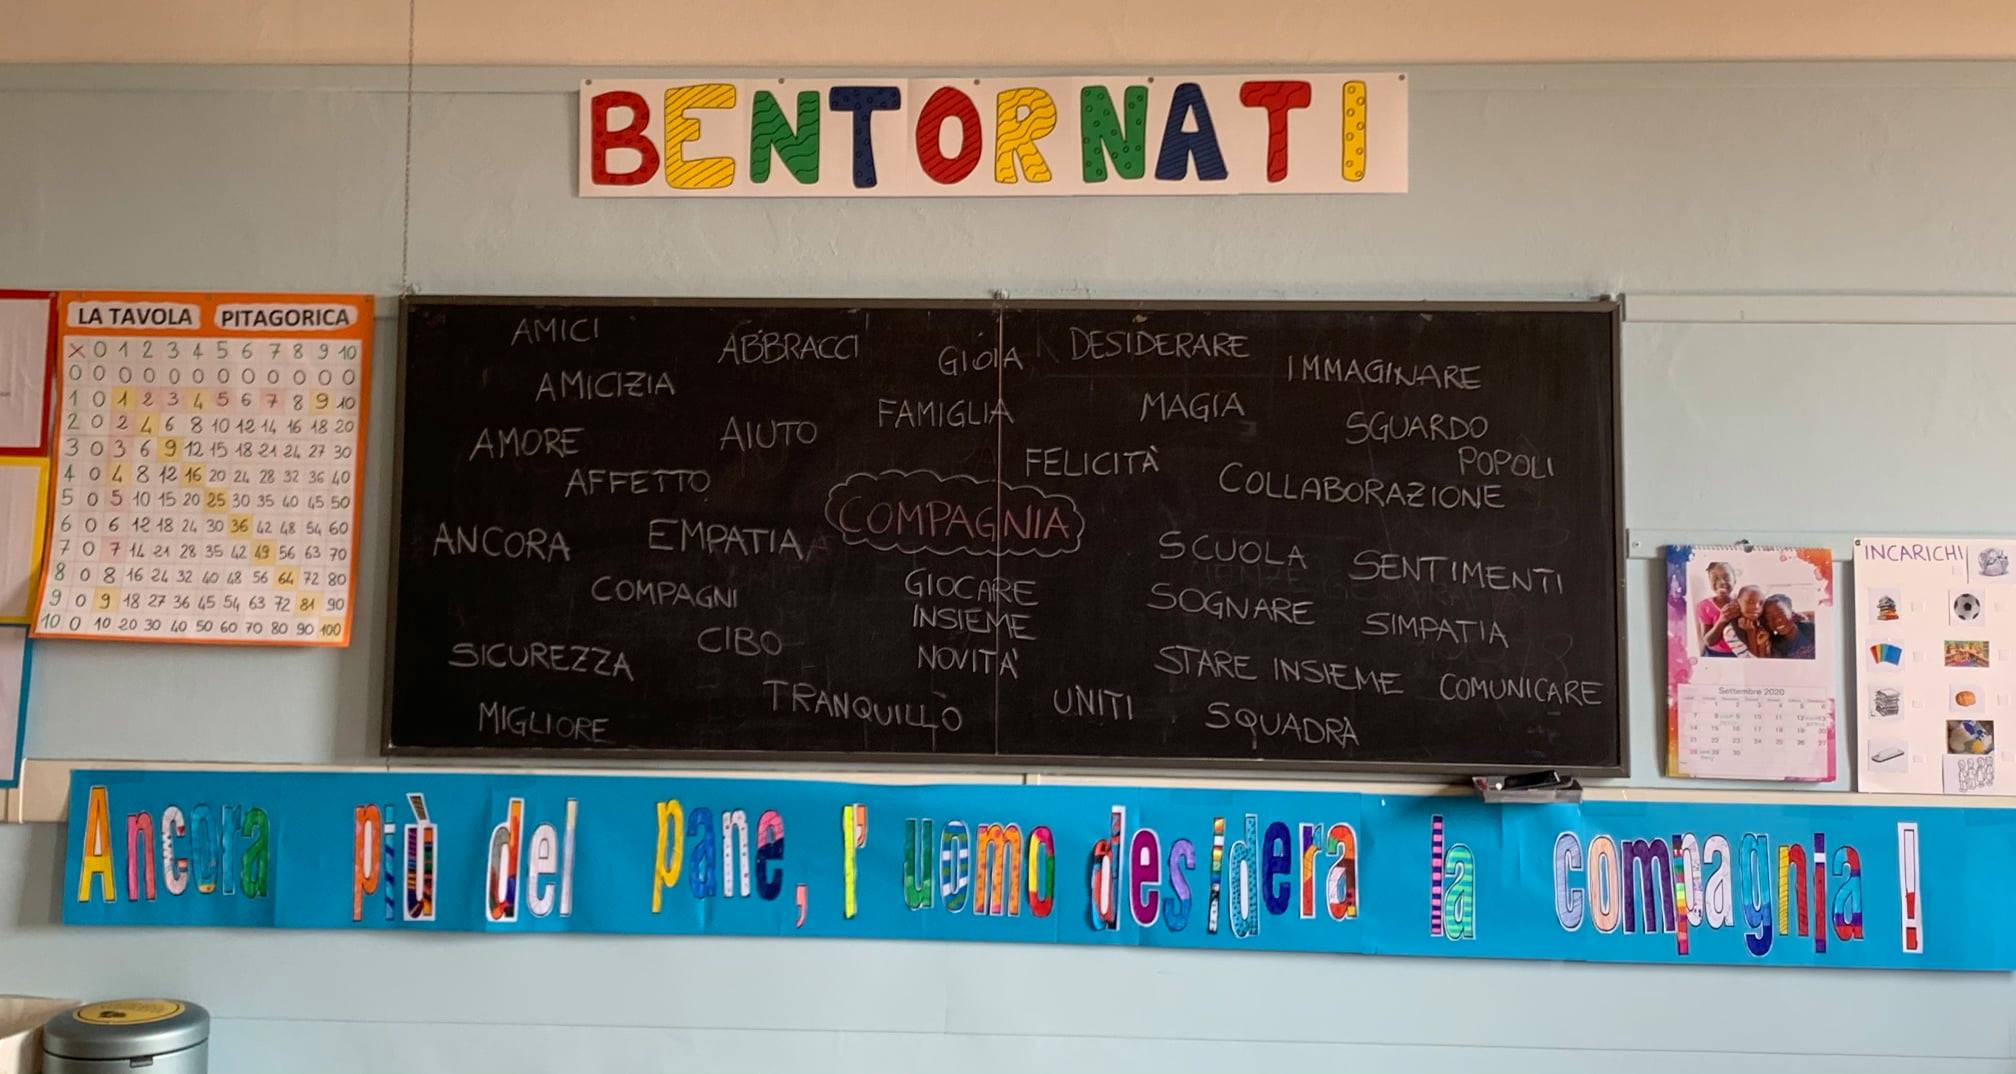 BENTORNATI
LA TAVOLA PITAGORICA
X 0 1 2 3 4 5 6 7 8 9 10
0 0 0 0 0 0 0 0 0 0 0 0
1 0 1 2 3 4 5 6 7 8 9 10
2 0 2 4 6 8 10 12 14 16 18 20
3 0 3 6 9 12 15 18 21 24 27 30
4 0 4 8 12 16 20 24 28 32 36 40
5 0 5 10 15 20 25 30 35 40 45 50
6 0 6 12 18 24 30 36 42 48 54 60
7 0 7 14 21 28 35 42 49 56 63 70
8 0 8 16 24 32 40 48 56 64 72 80
9 0 9 18 27 36 45 54 63 72 81 90
10 0 10 20 30 40 50 60 70 80 90 100
AMICI
ABBRACCI
GIOIA
DESIDERARE
IMMAGINARE
AMICIZIA
FAMIGLIA
MAGIA
SGUARDO
AMORE
AIUTO
FELICITÀ
POPOLI
AFFETTO
COLLABORAZIONE
COMPAGNIA
ANCORA
EMPATIA
SCUOLA
SENTIMENTI
COMPAGNI
GIOCARE
INSIEME
SOGNARE
SIMPATIA
CIBO
SICUREZZA
NOVITA'
STARE INSIEME
COMUNICARE
MIGLIORE
TRANQUILLO
UNITI
SQUADRA
Settembre 2020
INCARICHI
Ancora più del pane, l'uomo desidera la compagnia!